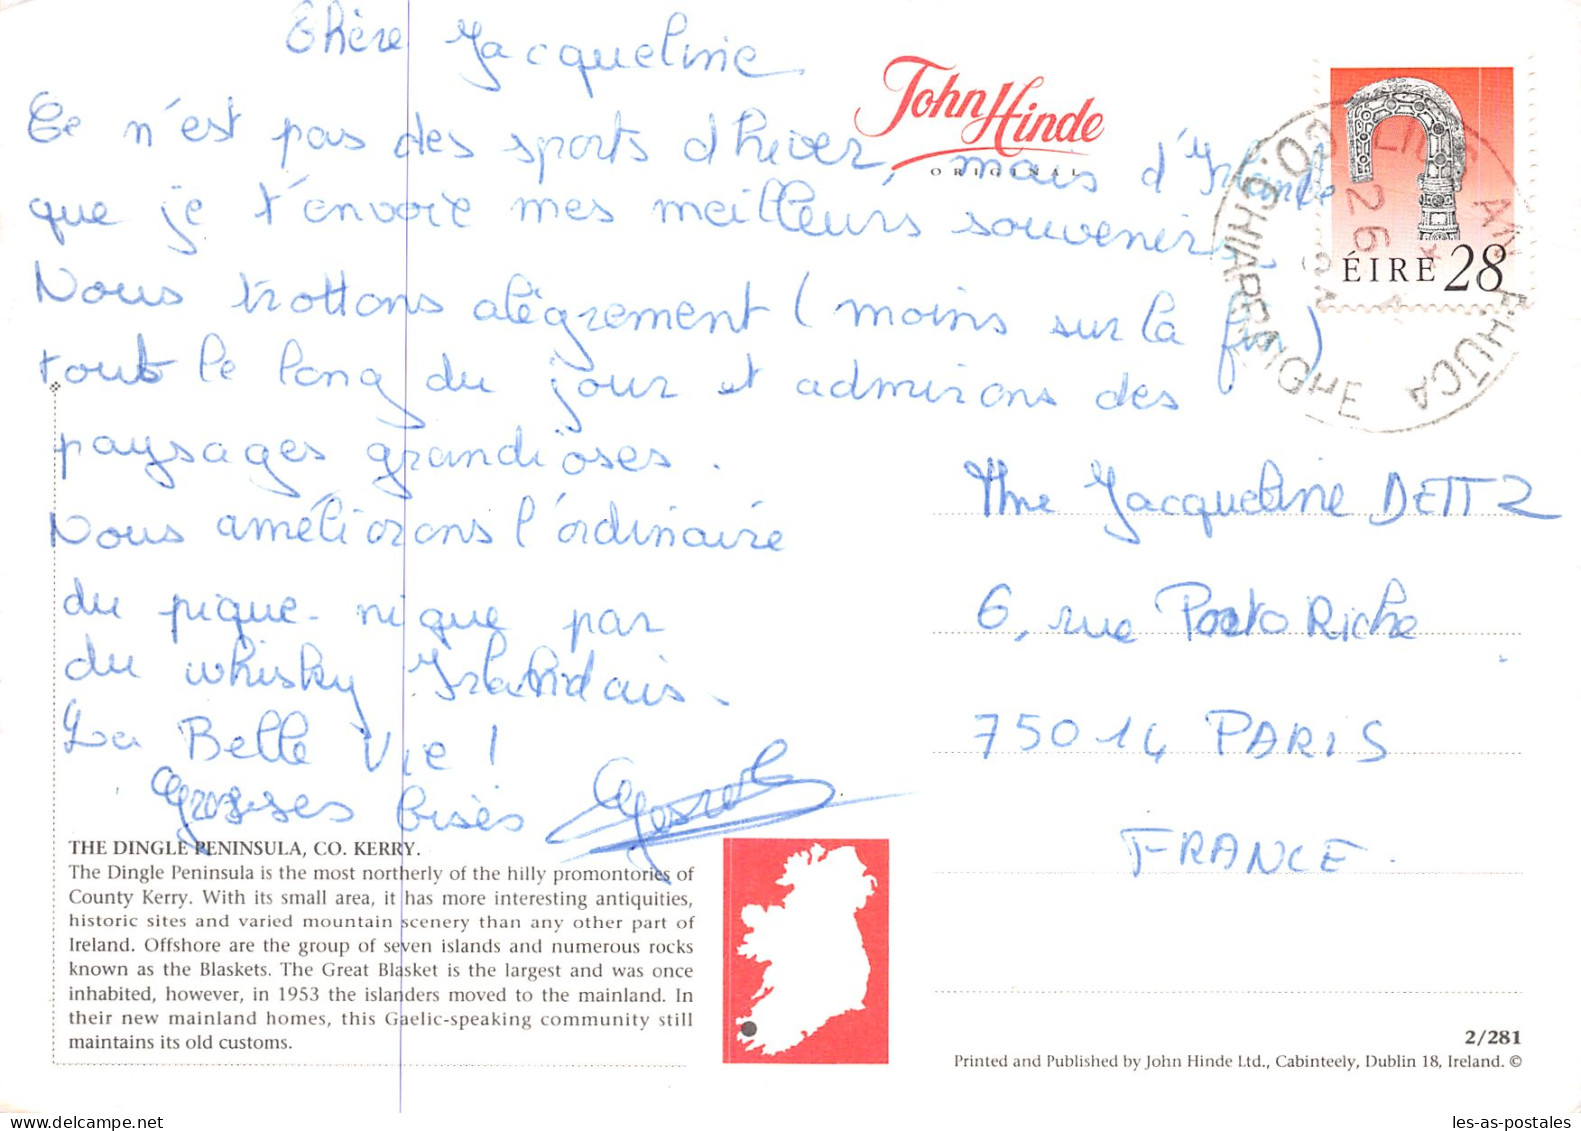 Chère Jacqueline
Ce n'est pas des sports d'hiver, mais d'Irlande
que je t'envoie mes meilleurs souvenirs.
Nous trottons alégrement (moins sur la fin)
tout le long du jour et admirons des
paysages grandioses.
Nous améliorons l'ordinaire
du pique-nique par
du whisky Irlandais.
La Belle Vie!
Grosses bises
John Hinde
ORIGINAL
ÉIRE 28
CO. CHIARRAIGHE
26
Mme Jacqueline DEITZ
6, rue Porto Riche
75014 PARIS
FRANCE.
THE DINGLE PENINSULA, CO. KERRY.
The Dingle Peninsula is the most northerly of the hilly promontories of
County Kerry. With its small area, it has more interesting antiquities,
historic sites and varied mountain scenery than any other part of
Ireland. Offshore are the group of seven islands and numerous rocks
known as the Blaskets. The Great Blasket is the largest and was once
inhabited, however, in 1953 the islanders moved to the mainland. In
their new mainland homes, this Gaelic-speaking community still
maintains its old customs.
2/281
Printed and Published by John Hinde Ltd., Cabinteely, Dublin 18, Ireland. ©
les-as-postales